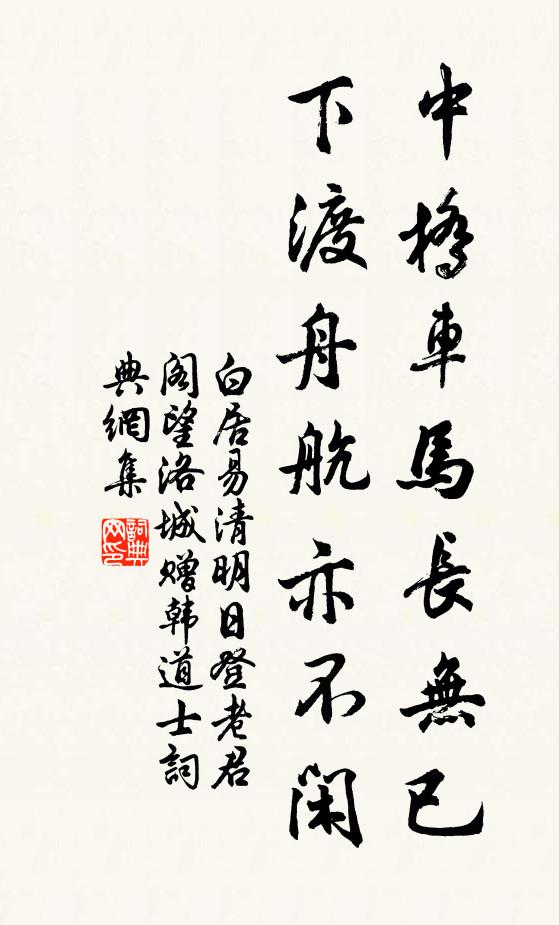 中橋車馬長無已
下渡舟航亦不閑
白居易清明日登老君
阁望洛城赠韩道士詞
典網集
詞典网印